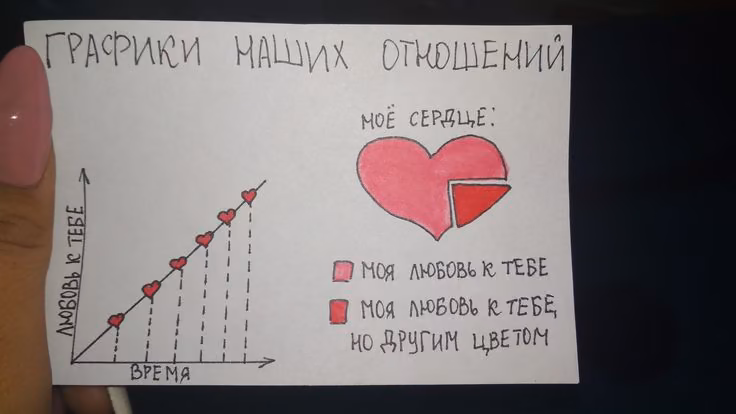 ГРАФИКИ НАШИХ ОТНОШЕНИЙ
МОЁ СЕРДЦЕ:
ЛЮБОВЬ К ТЕБЕ
ВРЕМЯ
МОЯ ЛЮБОВЬ К ТЕБЕ
МОЯ ЛЮБОВЬ К ТЕБЕ,
НО ДРУГИМ ЦВЕТОМ